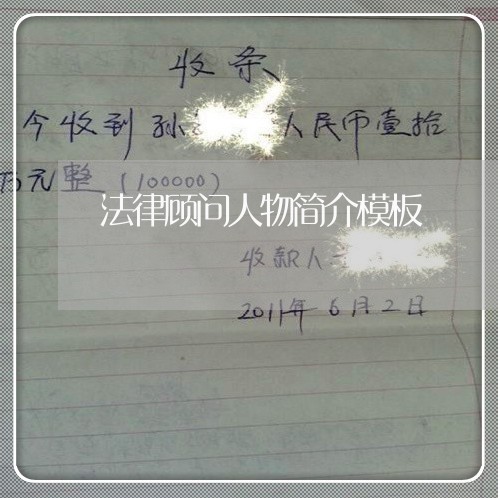 收条
今收到孙 人民币壹拾
万元整（100000）
法律顾问人物简介模板
收款人
2011年6月2日